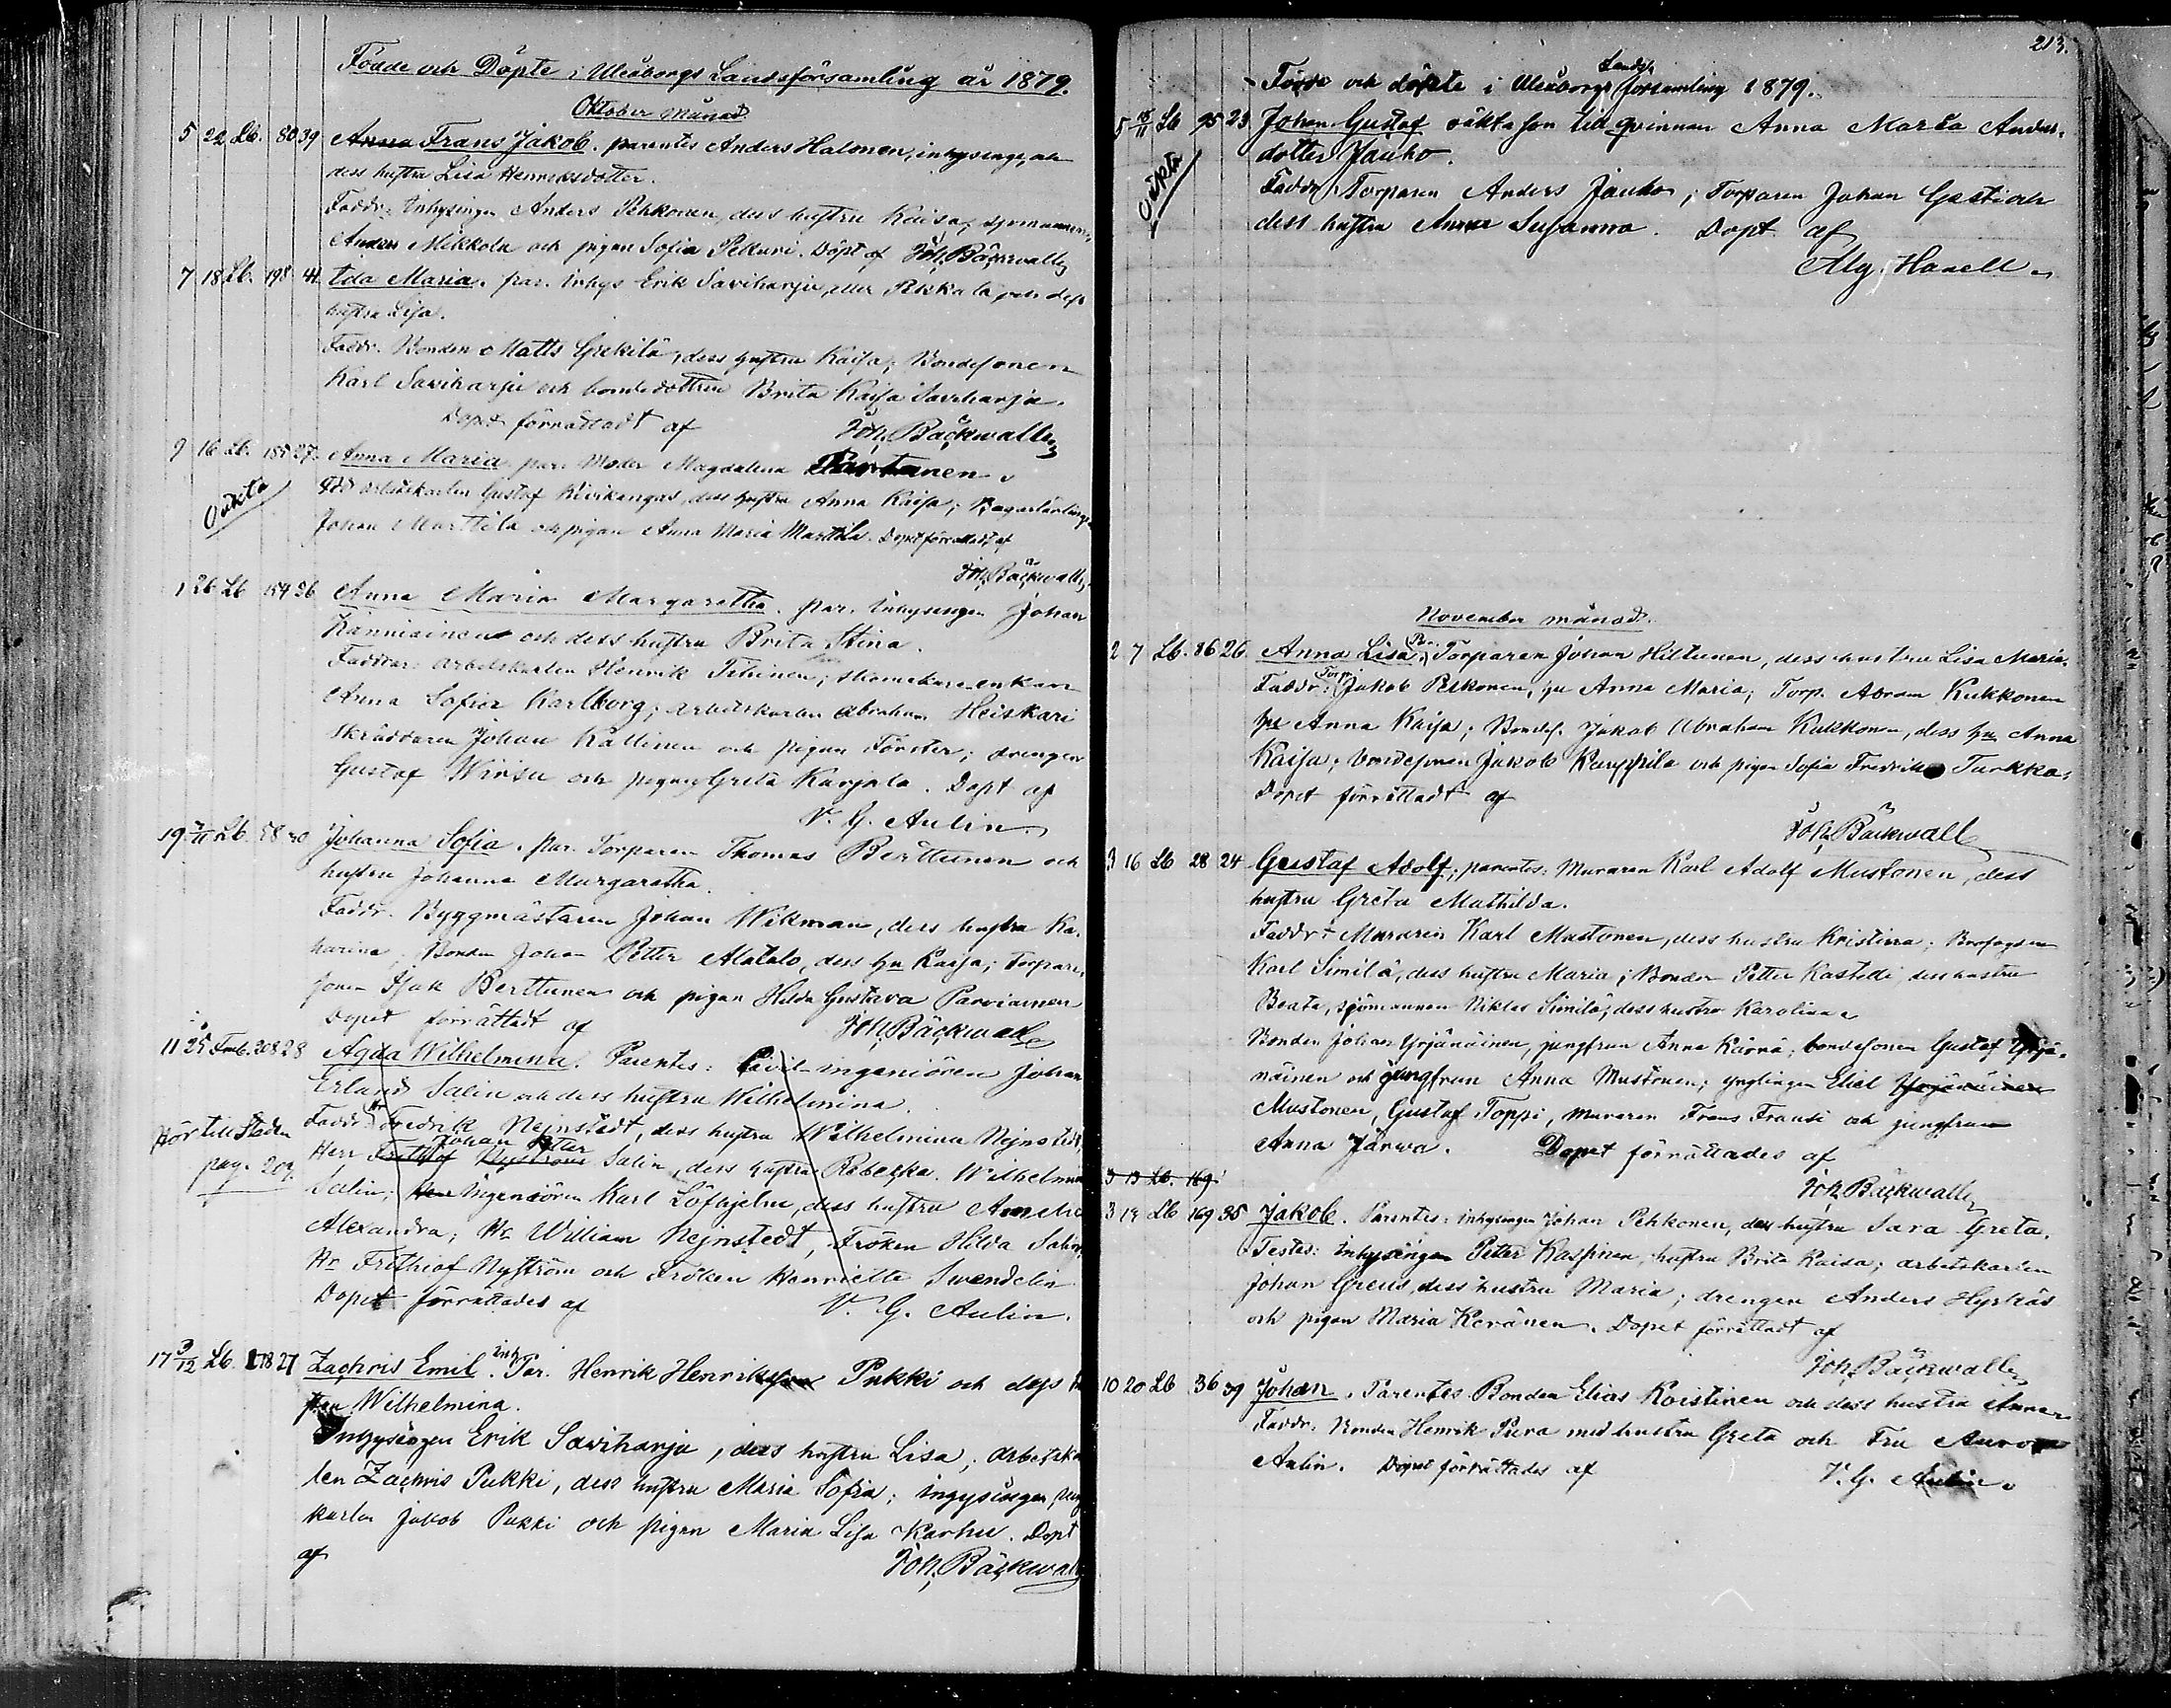 Födde och Döpte i Uleåborgs Landsförsamling år 1879.
Oktober månad
5 22 Lb. 80 39 Anna Frans Jakob. parentes Anders Halonen, inhysinge, och
dess hustru Lisa Henriksdotter.
Faddr: Inhysingen Anders Pehkonen, dess hustru Kaisa, sjömannen
Anders Mikkola och pigan Sofia Pelluri. Döpt af Joh. Bäckwall
7 18 Lb. 198 41 Ida Maria. par. inhys Erik Saviharju, eller Pekkala och dess
hustru Lisa.
Faddr. Bonden Matts Grekilä, dess hustru Kaisa; Bondesonen
Karl Saviharju och bondedottren Brita Kaisa Saviharju.
Dopet förrättadt af Joh. Bäckwall
9 16 Lb. 185 27 Anna Maria. par. Moder Magdalena Partanen.
Oäkta
Fdd arbetskarlen Gustaf Kivikangas, dess hustru Anna Kaisa; Bagarlärlingen
Johan Marttila och pigan Anna Maria Marttila. Dopet förrättadt af
Joh. Bäckwall
1 26 Lb 154 36 Anna Maria Margaretha. par. Inhysingen Johan
Känniäinen och dess hustru Brita Stina.
Faddrar: arbetskarlen Henrik Tihinen; skomakare enkan
Anna Sofia Karlborg; arbetskarlen Abraham Heiskari
skräddaren Johan Källinen och pigan Förster; drengen
Gustaf Wirsu och pigan Greta Karjala. Döpt af
V. G. Aulin.
19 /11 Lb. 58 40 Johanna Sofia. par. Torparen Thomas Berttunen och
hustru Johanna Margaretha.
Faddr. Byggmästaren Johan Wikman, dess hustru Ka-
harina, Bonden Johan Petter Alatalo, dess hu Kaisa; Torpare
sonen Isak Berttunen och pigan Hilda Gustava Parviainen
Dopet förrättadt af Joh. Bäckwall
11 25 208 28 Agda Wilhelmina. Parentes: Civil-ingeniören Johan
Erland Salin och dess hustru Wilhelmina.
hör till Staden
pag. 209.
Faddr Hr Fredrik Nejnstedt, dess hustru Wilhelmina Nejnstedt,
Johan Petter
Herr Frithiof Nyström Salin, dess hustru Rebecka Wilhelmina
Salin; Herr Ingeniören Karl Löfhjelm, dess hustru Amelie
Alexandra; Hr William Nejnstedt, Fröken Hilda Salin,
Hr Frithiof Nyström och Fröken Henriette Swendelin
Dopet förrättades af V. G. Aulin.
17 3/12 Lb. 178 27 Zachris Emil. Par. Inh. Henrik Henriksson Pukki och dess hu
stru Wilhelmina.
Inhysingen Erik Saviharju, dess hustru Lisa; arbetska
len Zachris Pukki, dess hustru Maria Sofia; inhysingen, ung
karlen Jakob Pukki och pigan Maria Lisa Karhu. Döpt
af Joh. Bäckwall
213.
Födde och döpte i Uleåborgs Lands församling 1879.
5 15/11 Lb 95 23 Johan Gustaf oäkta son till qvinnan Anna Maria Anders-
dotter Jauho.
Oäkta
Faddr: Torparen Anders Jauho; Torparen Johan Gasti och
dess hustru Anna Susanna. Döpt af
Alg. Hanell.
November månad.
2 7 Lb. 86 26 Anna Lisa, Par. Torparen Johan Hiltunen, dess hustru Lisa Maria.
Faddr: Torp. Jakob Peskonen, hu Anna Maria; Torp. Abram Kukkonen
hu Anna Kaisa; Bondes. Jakob Abraham Kukkonen, dess hu Anna
Kaisa; bondesonen Jakob Karppila och pigan Sofia Fredrika Turkka.
Dopet förrättadt af
Joh. Bäckwall
3 16 Lb 28 24 Gustaf Adolf; parentes: Muraren Karl Adolf Mustonen, dess
hustru Greta Mathilda.
Faddr: Muraren Karl Mustonen, dess hustru Kristina;
Karl Similä, dess hustru Maria; Bonden Petter Kastelli, dess hustru
Beata, sjömannen Niklas Similä, dess hustru Karolina
Bonden Johan Yrjänäinen, jungfrun Anna Kärnä; bondesonen Gustaf Yrjä-
näinen och jungfrun Anna Mustonen; ynglingen Eliel Yrjänäinen
Mustonen, Gustaf Toppi, muraren Frans Fransi och jungfrun
Anna Järwa. Dopet förrättades af
Joh. Bäckwall
3 13 Lb. 169
3 19 Lb 169 35 Jakob. Parentes: inhysingen Johan Pehkonen, dess hustru Sara Greta.
Testes: Inhysingen Peter Kaspinen, hustru Brita Kaisa; arbetskarlen
Johan Greus, dess hustru Maria; drengen Anders Hyrkäs
och pigan Maria Keränen. Dopet förrättadt af
Joh. Bäckwall
10 20 Lb 36 39 Johan. Parentes Bonden Elias Koistinen och dess hustru Anna
Faddr. Bonden Henrik Pura med hustru Greta och Fru Aurora
Aulin. Dopet förrättades af V. G. Aulin.